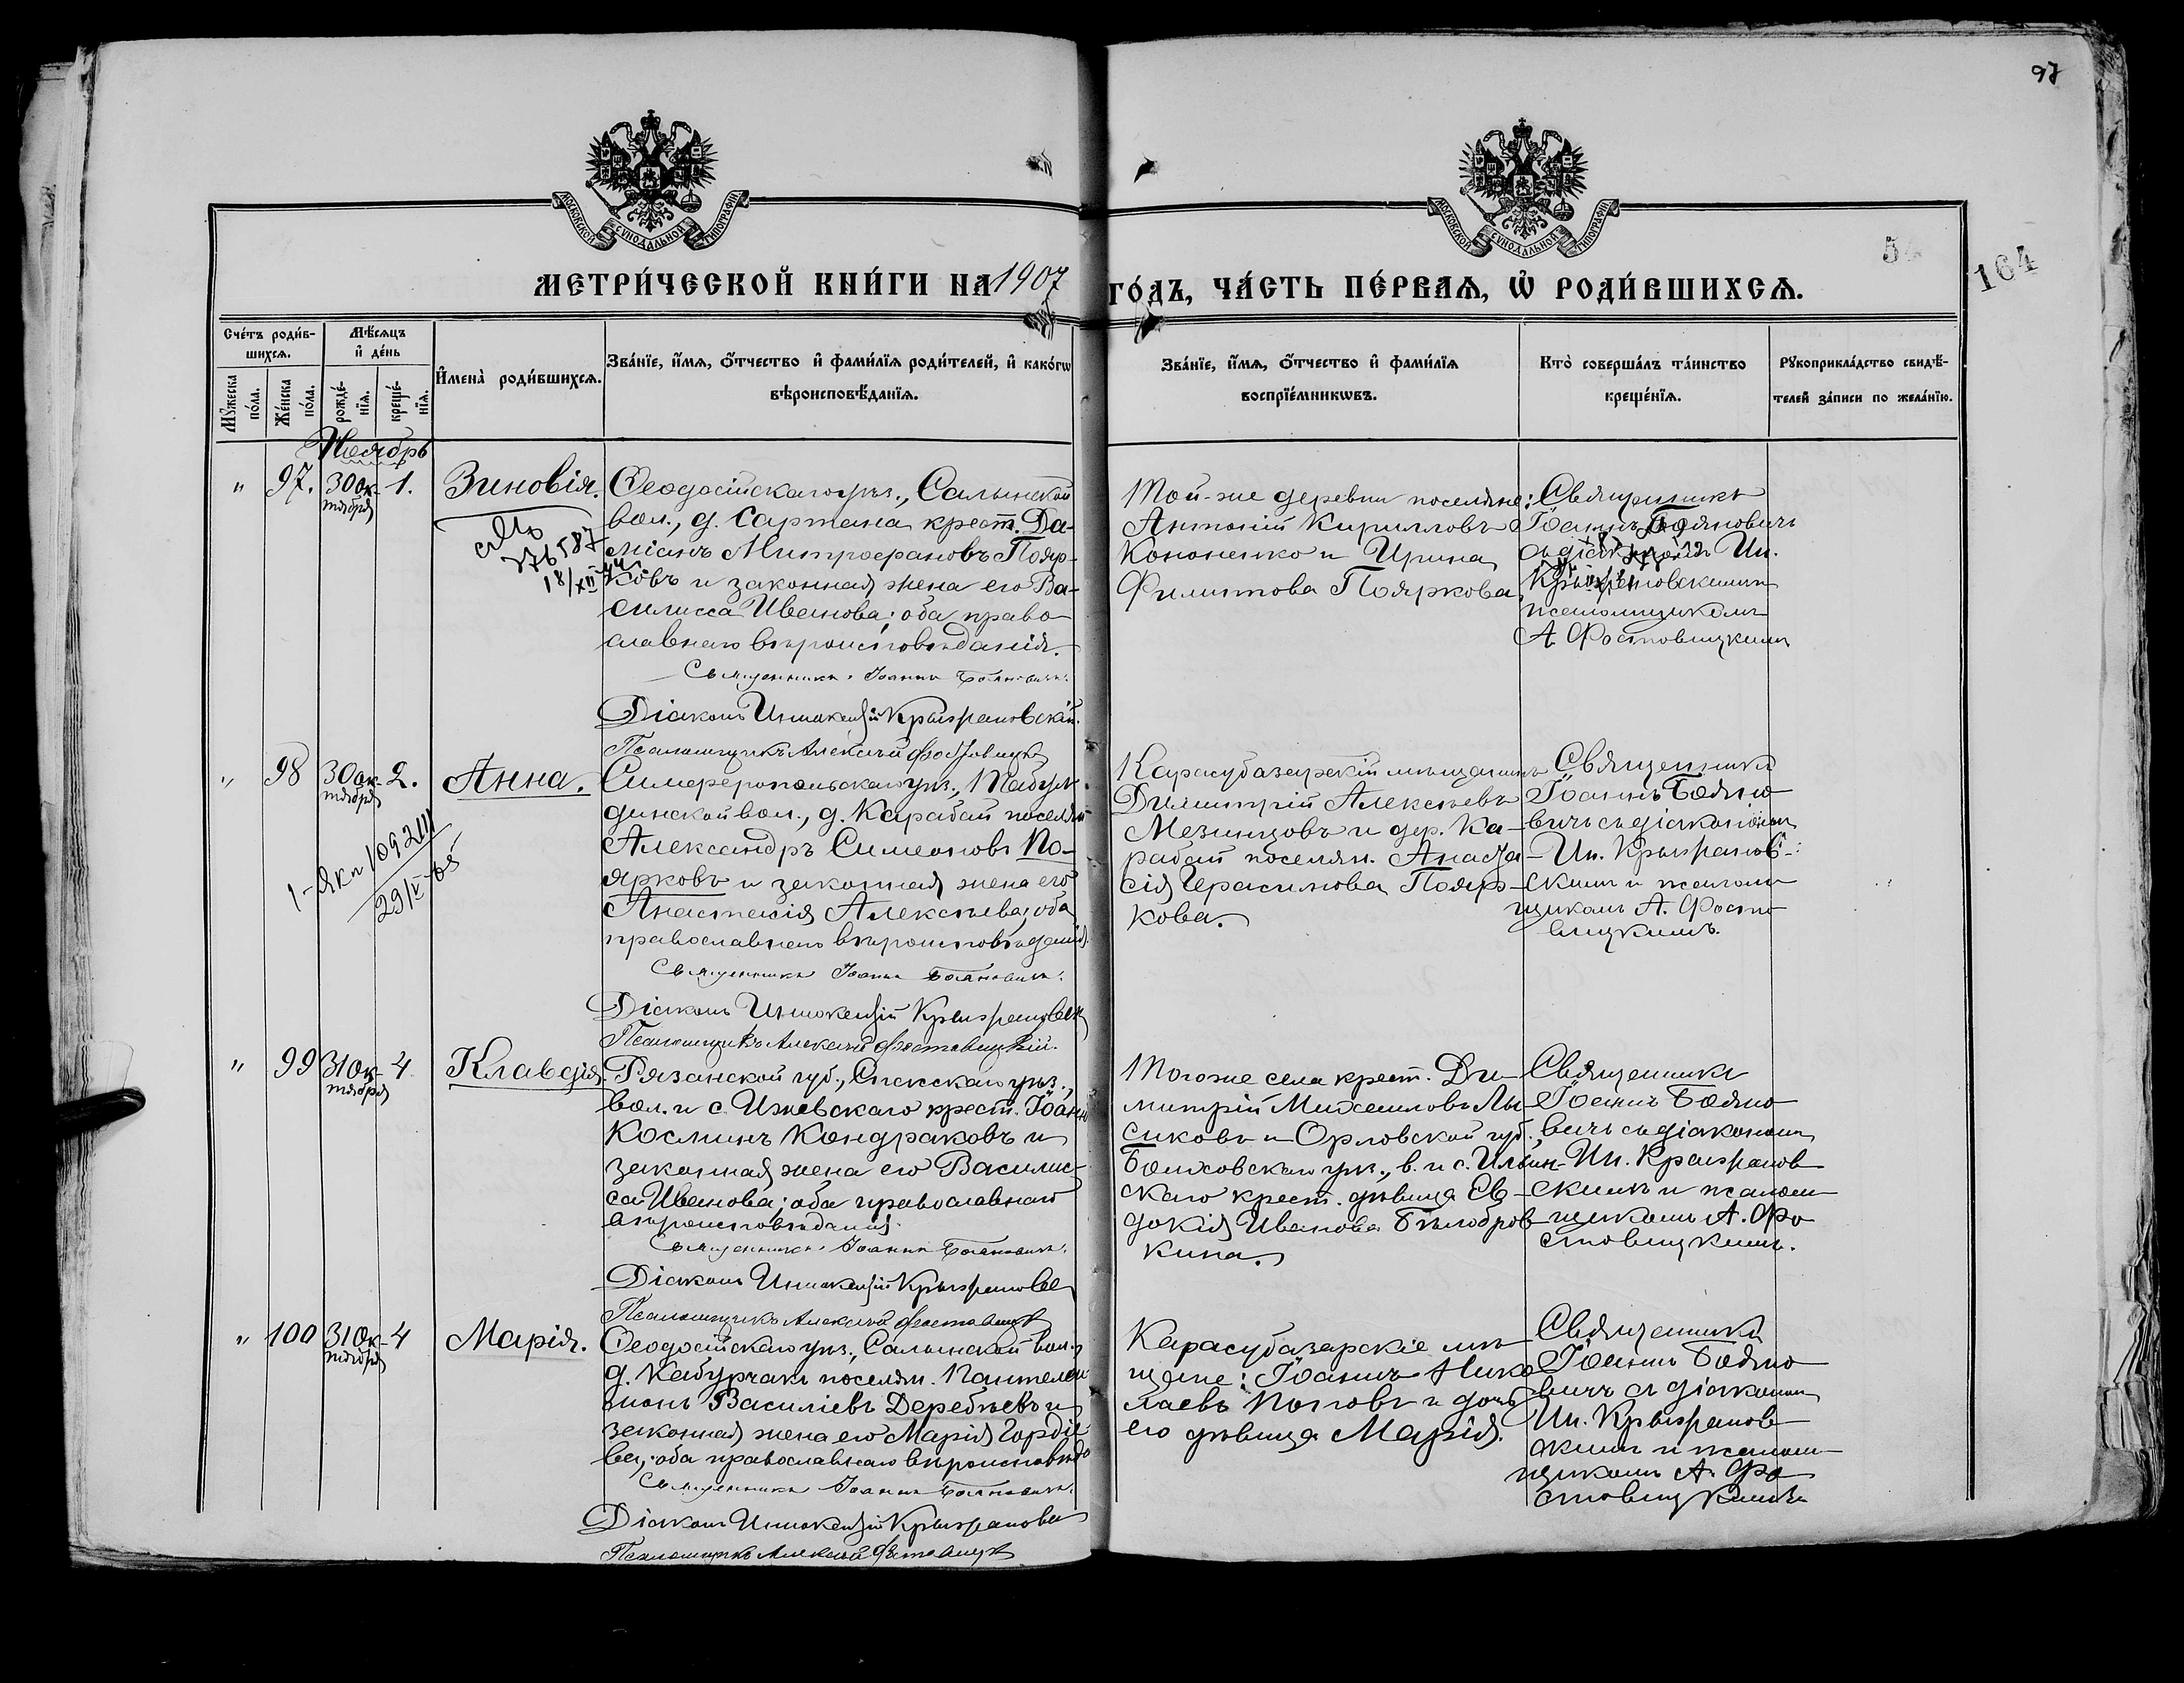 97
МОСКОВСКОЙ СѴНОДАЛЬНОЙ ТИПОГРАФІИ
МОСКОВСКОЙ СѴНОДАЛЬНОЙ ТИПОГРАФІИ
164
МЕТРИ́ЧЕСКОЙ КНИ́ГИ НА 1907 ГО́ДЪ, ЧА́СТЬ ПЕ́РВАѦ, Ѡ҆ РОДИ́ВШИХСѦ.
Сче́тъ роди́в-
шихсѧ.
Мꙋ́жеска по́ла.
Же́нска по́ла.
Мѣ́сѧцъ
и҆ де́нь
рожде́-
нїѧ.
креще́-
нїѧ.
И҆мена̀ роди́вшихсѧ.
Зва́нїе, и҆́мѧ, ѻ҆́тчество и҆ фами́лїѧ роди́телей, и҆ како́гѡ
вѣроисповѣ́данїѧ.
Зва́нїе, и҆́мѧ, ѻ҆́тчество и҆ фами́лїѧ
воспрїе́мникѡвъ.
Кто̀ соверша́лъ та́инство
креще́нїѧ.
Рꙋкоприкла́дство свидѣ́-
телей за́писи по жела́нїю.
Ноябрь
" 97. 30 ок-
тября 1. Зиновія.
Ѳеодосійскаго уѣз., Салынской
вол., д. Сартана крест. Да-
міанъ Митрофановъ Пояр-
ковъ и законная жена его Ва-
силисса Иванова; оба право-
славнаго вѣроисповѣданія.
Священникъ Іоаннъ Бояновичъ.
Діаконъ Иннокентій Крыжановскій.
Псаломщикъ Алексій Фостовицкій
276587
18/XII
Той-же деревни поселяне:
Антоній Кирилловъ
Кононенко и Ирина
Филиппова Пояркова.
Священникъ
Іоаннъ Бояновичъ
съ діакономъ Ин.
Крыжановскимъ и
псаломщикомъ
А. Фостовицкимъ
" 98 30 ок-
тября 2. Анна.
Симферопольскаго уѣз., Табул-
динской вол., д. Карабай поселян.
Александръ Симеоновъ По-
ярковъ и законная жена его
Анастасія Алексѣева; оба
православнаго вѣроисповѣданія.
Священникъ Іоаннъ Бояновичъ.
Діаконъ Иннокентій Крыжановск
Псаломщикъ Алексій Фостовицкій.
29/V-65
Карасубазарскій мѣщанинъ
Димитрій Алексѣевъ
Мезинцовъ и дер. Ка-
рабай поселян. Анаста-
сія Герасимова Пояр-
кова.
Священникъ
Іоаннъ Бояно-
вичъ съ діакономъ
Ин. Крыжанов-
скимъ и псалом-
щикомъ А. Фосто-
вицкимъ.
" 99 31 Ок-
тября 4 Клавдія.
Рязанской губ., Спасскаго уѣз.,
вол. и с. Ижевскаго крест. Іоаннъ
Косминъ Кондраковъ и
законная жена его Василис-
са Иванова; оба православнаго
вѣроисповѣданія.
Священникъ Іоаннъ Бояновичъ.
Діаконъ Иннокентій Крыжановс
Псаломщикъ Алексій Фостовицк
Того же села крест. Ди-
митрій Михаиловъ Лы-
сиковъ и Орловской губ.,
Болховскаго уѣз., в. и с. Ильин-
скаго крест. дѣвица Ев-
докія Иванова Бѣлобров-
кина.
Священникъ
Іоаннъ Бояно-
вичъ съ діакономъ
Ин. Крыжанов-
скимъ и псалом-
щикомъ А. Фо-
стовицкимъ.
" 100 31 Ок-
тября 4 Марія.
Ѳеодосійскаго уѣз., Салынской вол.,
д. Кабурчакъ поселян. Пантелеи-
монъ Василіевъ Деребѣевъ и
законная жена его Марія Гордіе-
ва; оба православнаго вѣроисповѣда
Священникъ Іоаннъ Бояновичъ.
Діаконъ Иннокентій Крыжановск
Псаломщикъ Алексій Фостовицк
Карасубазарскіе мѣ-
щане: Іоаннъ Нико-
лаевъ Поповъ и дочь
его дѣвица Марія.
Священникъ
Іоаннъ Бояно-
вичъ съ діакономъ
Ин. Крыжанов-
скимъ и псалом-
щикомъ А. Фо-
стовицкимъ